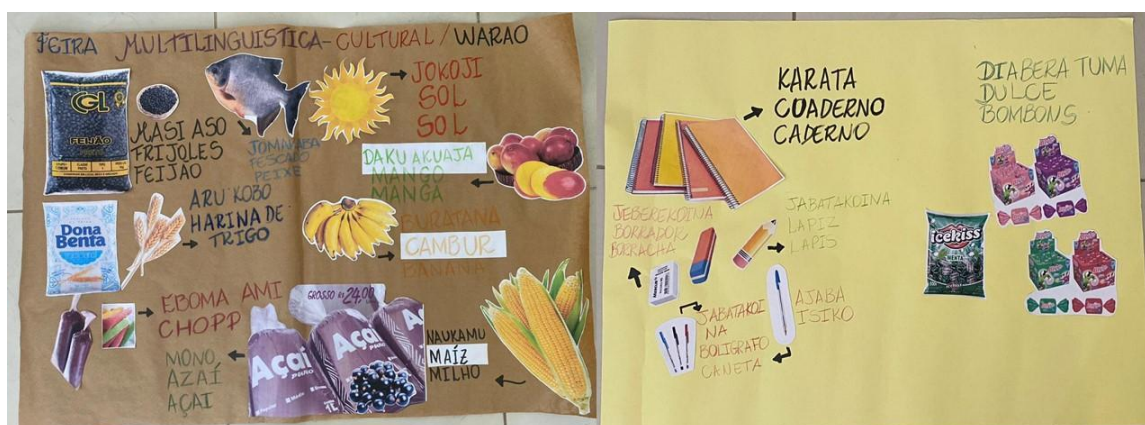 FEIRA MULTILINGUISTICA-CULTURAL / WARAO
CGL
FEIJÃO
MASI ASO
FRIJOLES
FEIJAO
PESCADO
PEIXE
JOKOJI
SOL
SOL
DAKU AKUAJA
MANGO
MANGA
Dona
Benta
ARU KOBO
HARINA DE
TRIGO
CAMBUR
BANANA
EBOMA AMI
CHOPP
MONO
AZAÍ
AÇAI
GROSSO R$ 24,00
Açaí
Açaí
NAUKAMU
MAÍZ
MILHO
KARATA
CUADERNO
CADERNO
DIABERA TUMA
DULCE
BOMBONS
JEBEREKOINA
BORRADOR
BORRACHA
JABATAKOINA
LAPIZ
LAPIS
Icekiss
JABATAKOI
NA
BOLIGRAFO
CANETA
AJABA
ISIKO